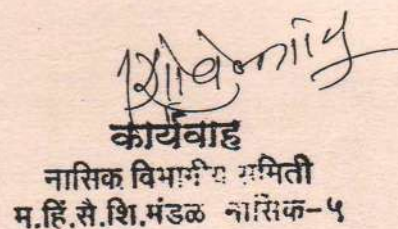 कार्यवाह
नासिक विभागीय समिती
म.हिं.सै.शि.मंडळ नासिक-५